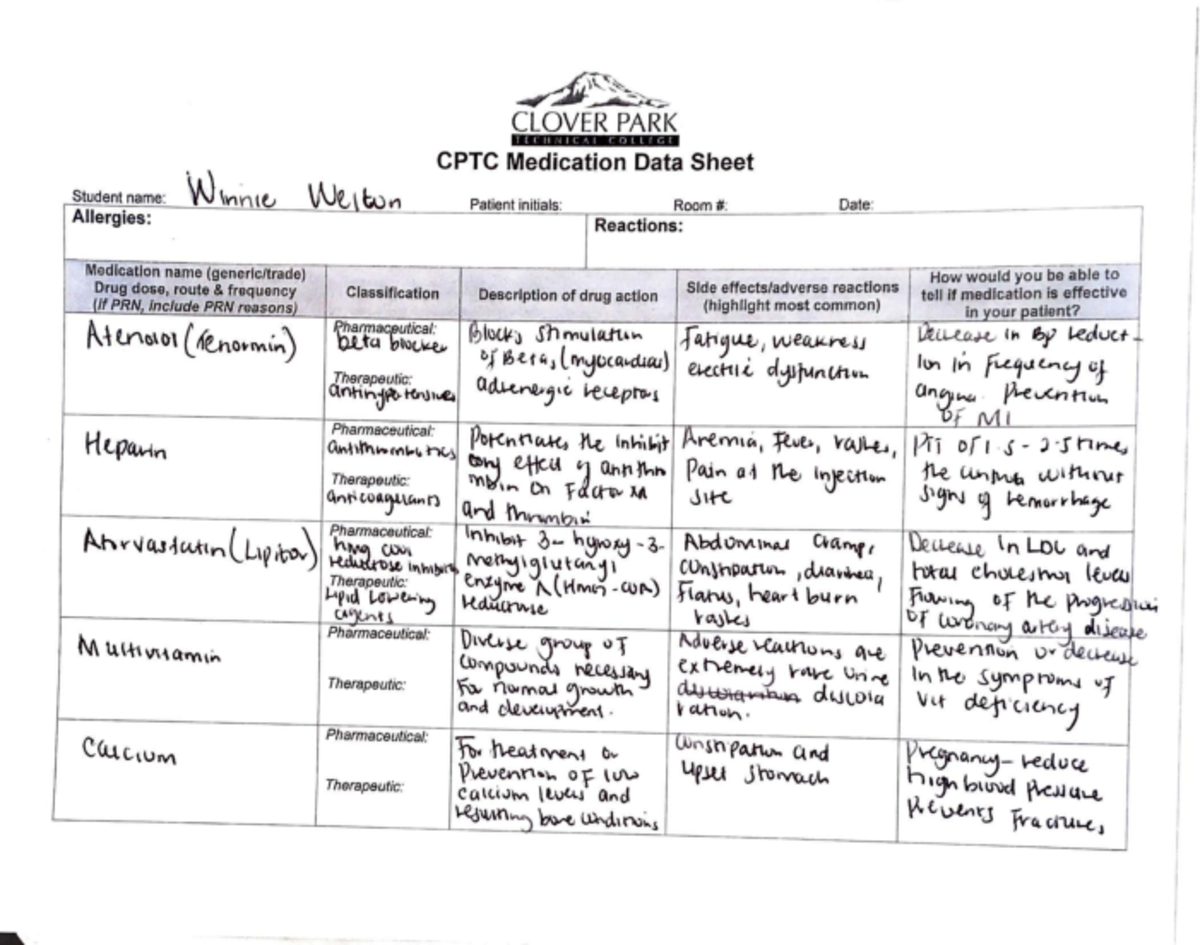 CLOVER PARK
TECHNICAL COLLEGE
CPTC Medication Data Sheet
Student name: Winnie Welton Patient initials: Room #: Date:
Allergies: Reactions:
Medication name (generic/trade)
Drug dose, route & frequency
(if PRN, include PRN reasons)
Classification
Description of drug action
Side effects/adverse reactions
(highlight most common)
How would you be able to
tell if medication is effective
in your patient?
Atenolol (Tenormin)
Pharmaceutical:
beta blocker
Therapeutic:
antihypertensives
Blocks stimulation
of Beta, (myocardial)
adrenergic receptors
Fatigue, weakness
erectile dysfunction
Decrease in BP reduct-
ion in frequency of
angina. Prevention
of MI
Heparin
Pharmaceutical:
antithrombotics
Therapeutic:
anticoagulants
Potentiates the inhibit
tory effect of antithro
mbin on Factor xa
and thrombin
Anemia, Fever, rashes,
Pain at the injection
site
PTT of 1.5-2.5 times
the without
signs of hemorrhage
Atorvastatin (Lipitor)
Pharmaceutical:
hmg coa
reductose inhibitors
Therapeutic:
Lipid Lowering
agents
Inhibit 3-hyroxy-3-
methylglutaryl
enzyme A (Hmg-coA)
reductase
Abdominal cramp,
constipation, diarrhea,
Flatus, heart burn
rashes
Decrease in LDL and
total cholesterol levels
of the progression
of coronary artery disease
Multivitamin
Pharmaceutical:
Therapeutic:
Diverse group of
compounds necessary
for normal growth
and development.
Adverse reactions are
extremely rare urine
discola
ration.
Prevention or decrease
in the symptoms of
vit deficiency
Calcium
Pharmaceutical:
Therapeutic:
For treatment or
Prevention of low
calcium levels and
resulting bone conditions
Constipation and
upset stomach
Pregnancy - reduce
high blood pressure
Prevents Fractures,